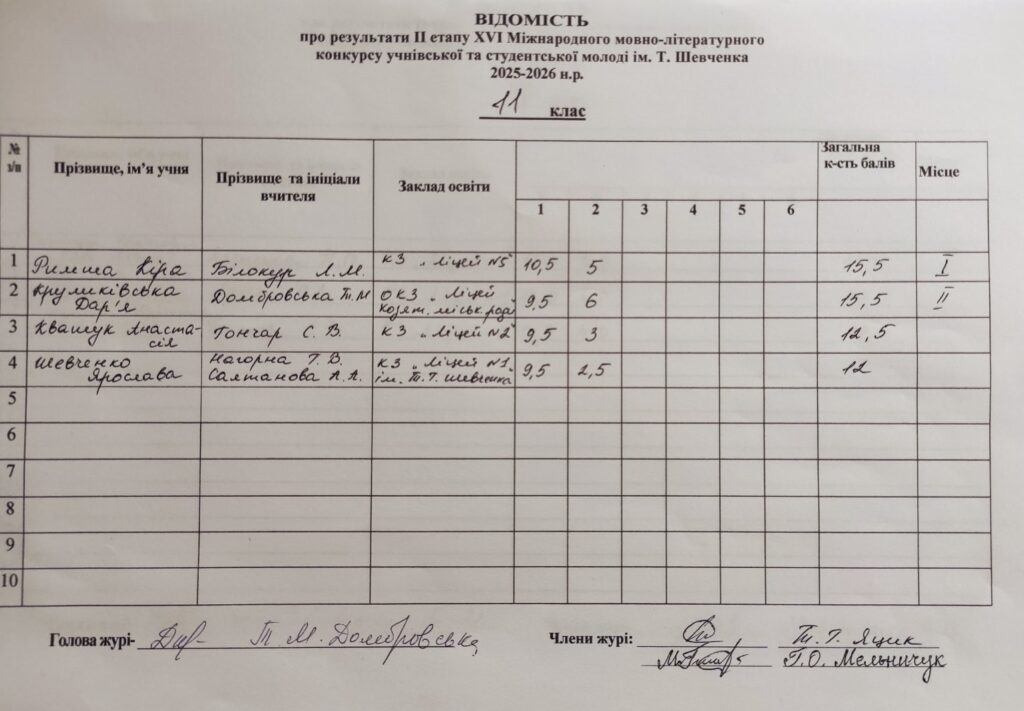 ВІДОМІСТЬ
про результати ІІ етапу XVI Міжнародного мовно-літературного
конкурсу учнівської та студентської молоді ім. Т. Шевченка
2025-2026 н.р.
11 клас
№ з/п Прізвище, ім’я учня Прізвище та ініціали вчителя Заклад освіти 1 2 3 4 5 6 Загальна к-сть балів Місце
1 Римша Кіра Білокур Л.М. КЗ „Ліцей №5" 10,5 5 15,5 І
2 Крумиківська Дар'я Домбровська Т.М ОКЗ „Ліцей Козят. міськ. ради" 9,5 6 15,5 ІІ
3 Квашук Анастасія Гончар С. В. КЗ „Ліцей №2" 9,5 3 12,5
4 Шевченко Ярослава Нагорна Т. В. Салтанова А. А. КЗ „Ліцей №1 ім. Т. Г. Шевченка" 9,5 2,5 12
5
6
7
8
9
10
Голова журі- Т. М. Домбровська Члени журі: Т. Г. Яцик
Г.О. Мельничук